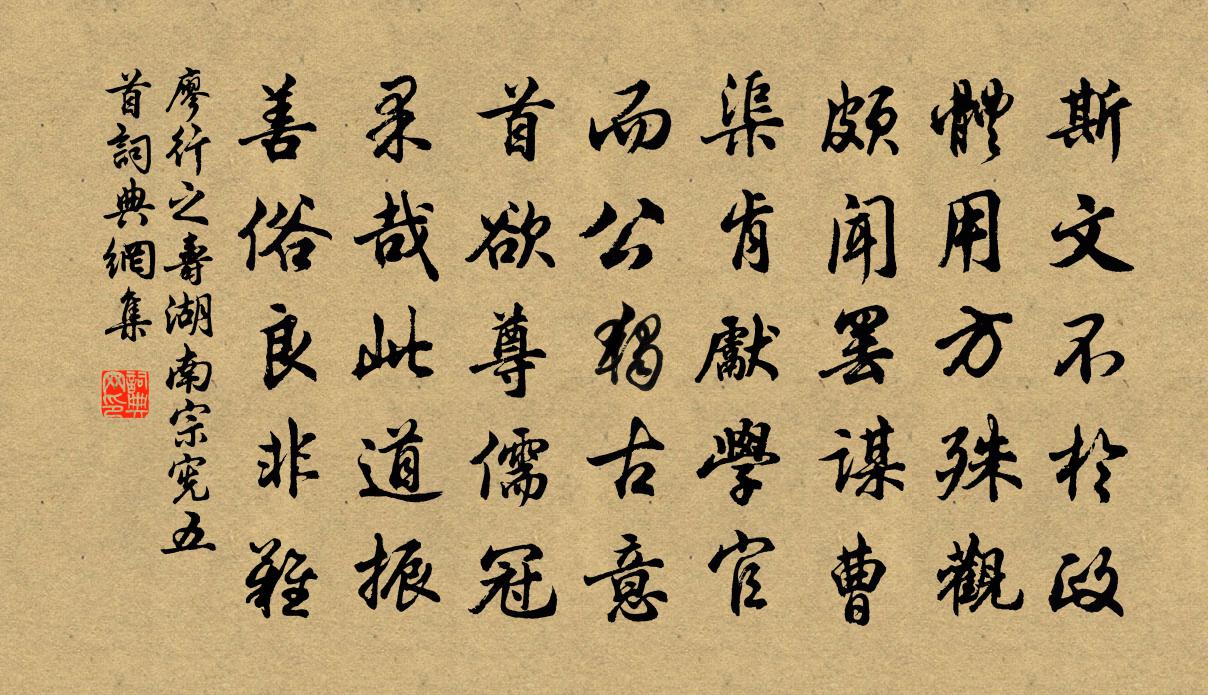 斯文不於政
體用方殊觀
頗聞罢謀曹
渠肯獻學官
而公獨古意
首欲尊儒冠
果哉此道振
善俗良非難
廖行之壽湖南宗宪五
首詞典網集
詞典
网印